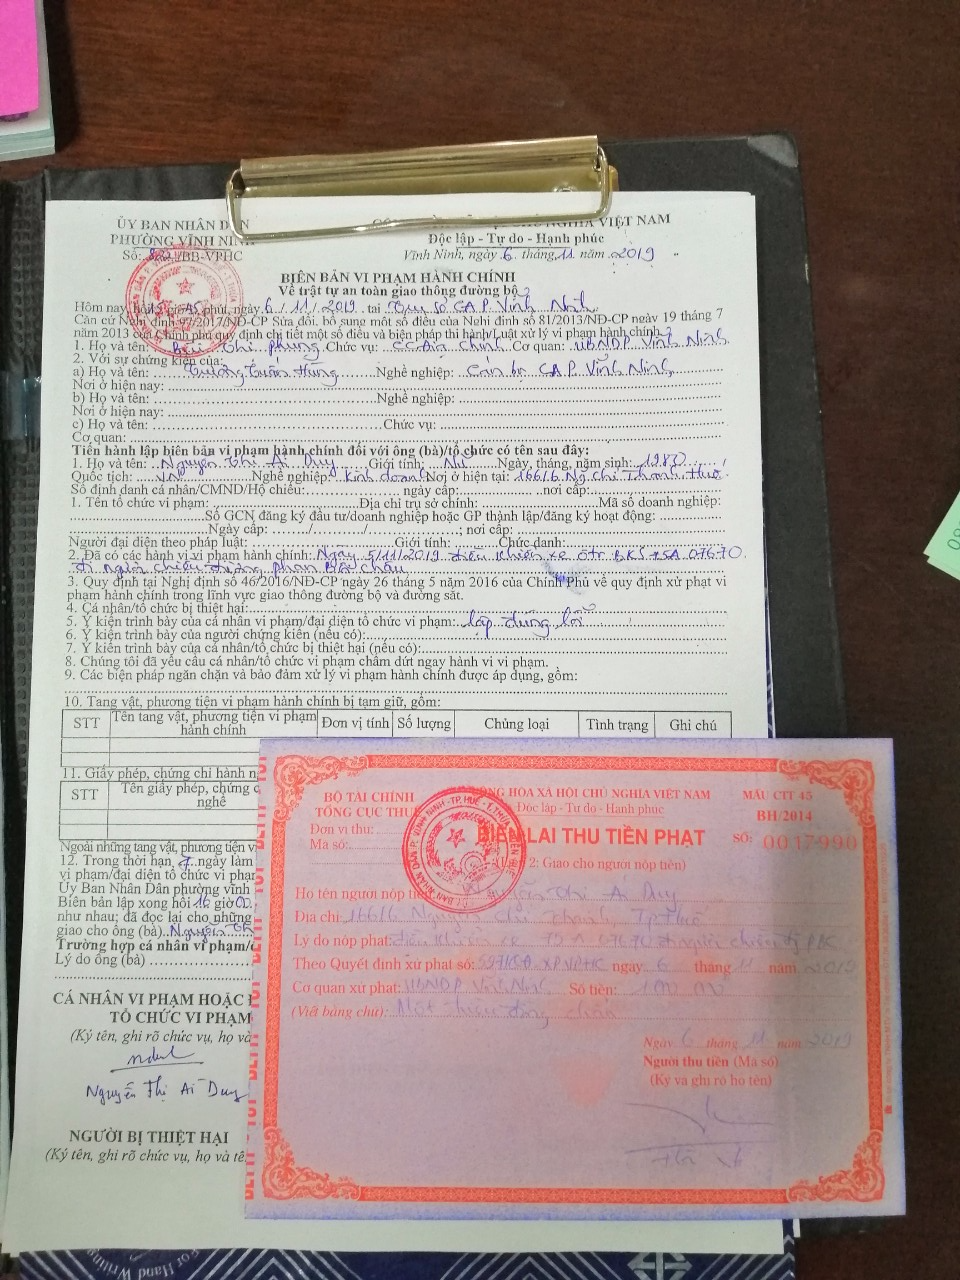 ỦY BAN NHÂN DÂN
NGHĨA VIỆT NAM
PHƯỜNG VĨNH NINH
Độc lập - Tự do - Hạnh phúc
Số: /BB-VPHC
Vĩnh Ninh, ngày 6 tháng 11 năm 2019
BIÊN BẢN VI PHẠM HÀNH CHÍNH
Về trật tự an toàn giao thông đường bộ
Hôm nay, hồi 15 giờ 45 phút, ngày 6/11/2019 tại Trụ sở CAP Vĩnh Ninh
Căn cứ Nghị định 97/2017/NĐ-CP Sửa đổi, bổ sung một số điều của Nghị định số 81/2013/NĐ-CP ngày 19 tháng 7
năm 2013 của Chính phủ quy định chi tiết một số điều và biện pháp thi hành Luật xử lý vi phạm hành chính
1. Họ và tên: Bùi Thị Phụng Chức vụ: Cơ quan: UBNDP Vĩnh Ninh
2. Với sự chứng kiến của:
a) Họ và tên: Trương Tuấn Hùng Nghề nghiệp: Cán bộ CAP Vĩnh Ninh
Nơi ở hiện nay:
b) Họ và tên: Nghề nghiệp:
Nơi ở hiện nay:
c) Họ và tên: Chức vụ:
Cơ quan:
Tiến hành lập biên bản vi phạm hành chính đối với ông (bà)/tổ chức có tên sau đây:
1. Họ và tên: Nguyễn Thị Ái Duy Giới tính: Nữ Ngày, tháng, năm sinh: 1980
Quốc tịch: VN Nghề nghiệp: Kinh doanh Nơi ở hiện tại: 166/6 Ng Chí Thanh, Huế
Số định danh cá nhân/CMND/Hộ chiếu: ngày cấp: nơi cấp:
1. Tên tổ chức vi phạm: Địa chỉ trụ sở chính: Mã số doanh nghiệp:
Số GCN đăng ký đầu tư/doanh nghiệp hoặc GP thành lập/đăng ký hoạt động:
Ngày cấp: / / ; nơi cấp:
Người đại diện theo pháp luật: Giới tính: Chức danh:
2. Đã có các hành vi vi phạm hành chính: Ngày 5/11/2019 điều khiển xe ôtô BKS 75A 07670
đi ngược chiều đường Phan Bội Châu
3. Quy định tại Nghị định số 46/2016/NĐ-CP ngày 26 tháng 5 năm 2016 của Chính Phủ về quy định xử phạt vi
phạm hành chính trong lĩnh vực giao thông đường bộ và đường sắt.
4. Cá nhân/tổ chức bị thiệt hại:
5. Ý kiến trình bày của cá nhân vi phạm/đại diện tổ chức vi phạm: lập đúng lỗi
6. Ý kiến trình bày của người chứng kiến (nếu có):
7. Ý kiến trình bày của cá nhân/tổ chức bị thiệt hại (nếu có):
8. Chúng tôi đã yêu cầu cá nhân/tổ chức vi phạm chấm dứt ngay hành vi vi phạm.
9. Các biện pháp ngăn chặn và bảo đảm xử lý vi phạm hành chính được áp dụng, gồm:
10. Tang vật, phương tiện vi phạm hành chính bị tạm giữ, gồm:
STT Tên tang vật, phương tiện vi phạm hành chính Đơn vị tính Số lượng Chủng loại Tình trạng Ghi chú
11. Giấy phép, chứng chỉ hành n
STT Tên giấy phép, chứng c
nghề
Ngoài những tang vật, phương tiện v
12. Trong thời hạn 7 ngày làm
vi phạm/đại diện tổ chức vi phạ
Ủy Ban Nhân Dân phường vĩnh
Biên bản lập xong hồi 16 giờ 00
như nhau; đã đọc lại cho những
giao cho ông (bà) Nguyễn Th
Trường hợp cá nhân vi phạm/
Lý do ông (bà)
CÁ NHÂN VI PHẠM HOẶC
TỔ CHỨC VI PHẠM
(Ký tên, ghi rõ chức vụ, họ và
Nguyễn Thị Ái Duy
NGƯỜI BỊ THIỆT HẠI
(Ký tên, ghi rõ chức vụ, họ và tê
BỘ TÀI CHÍNH
CỘNG HÒA XÃ HỘI CHỦ NGHĨA VIỆT NAM
MẪU CTT 45
TỔNG CỤC THUẾ
Độc lập - Tự do - Hạnh phúc
BH/2014
Đơn vị thu:
BIÊN LAI THU TIỀN PHẠT
SỐ: 0017990
Mã số:
(Liên 2: Giao cho người nộp tiền)
Họ tên người nộp tiền Nguyễn Thị Ái Duy
Địa chỉ: 166/6 Nguyễn Chí Thanh, TP Huế
Lý do nộp phạt: điều khiển xe 75A 07670 đi ngược chiều
Theo Quyết định xử phạt số: XPVPHC ngày 6 tháng 11 năm 2019
Cơ quan xử phạt: UBNDP Vĩnh Ninh Số tiền:
(Viết bằng chữ): Một triệu đồng chẵn
Ngày 6 tháng 11 năm 2019
Người thu tiền (Mã số)
(Ký và ghi rõ họ tên)
For Hand Writing